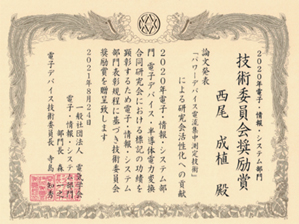 2020年電子・情報・システム部門
技術委員会奨励賞
西尾 成植 殿
論文発表
「パワーデバイス電流集中測定技術」
による研究会活性化への貢献
2020年電子・情報・システム部
門 電子デバイス・半導体電力変換
合同研究会における標記の功績を
表彰するため電子・情報・システム
部門表彰規程に基づき技術委員会
奨励賞を贈呈致します
2021年8月24日
一般社団法人 電気学会
電子・情報・システム部門
部門長 森
電子デバイス技術委員長 寺島 知秀